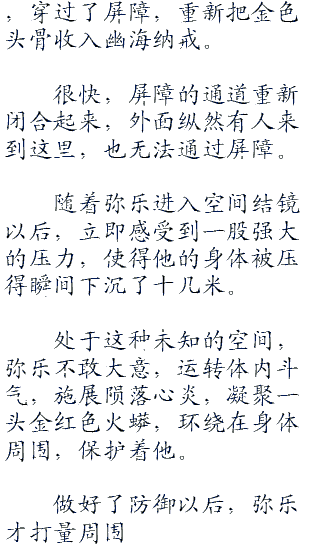 ，穿过了屏障，重新把金色
头骨收入幽海纳戒。
很快，屏障的通道重新
闭合起来，外面纵然有人来
到这里，也无法通过屏障。
随着弥乐进入空间结镜
以后，立即感受到一股强大
的压力，使得他的身体被压
得瞬间下沉了十几米。
处于这种未知的空间，
弥乐不敢大意，运转体内斗
气，施展陨落心炎，凝聚一
头金红色火蟒，环绕在身体
周围，保护着他。
做好了防御以后，弥乐
才打量周围